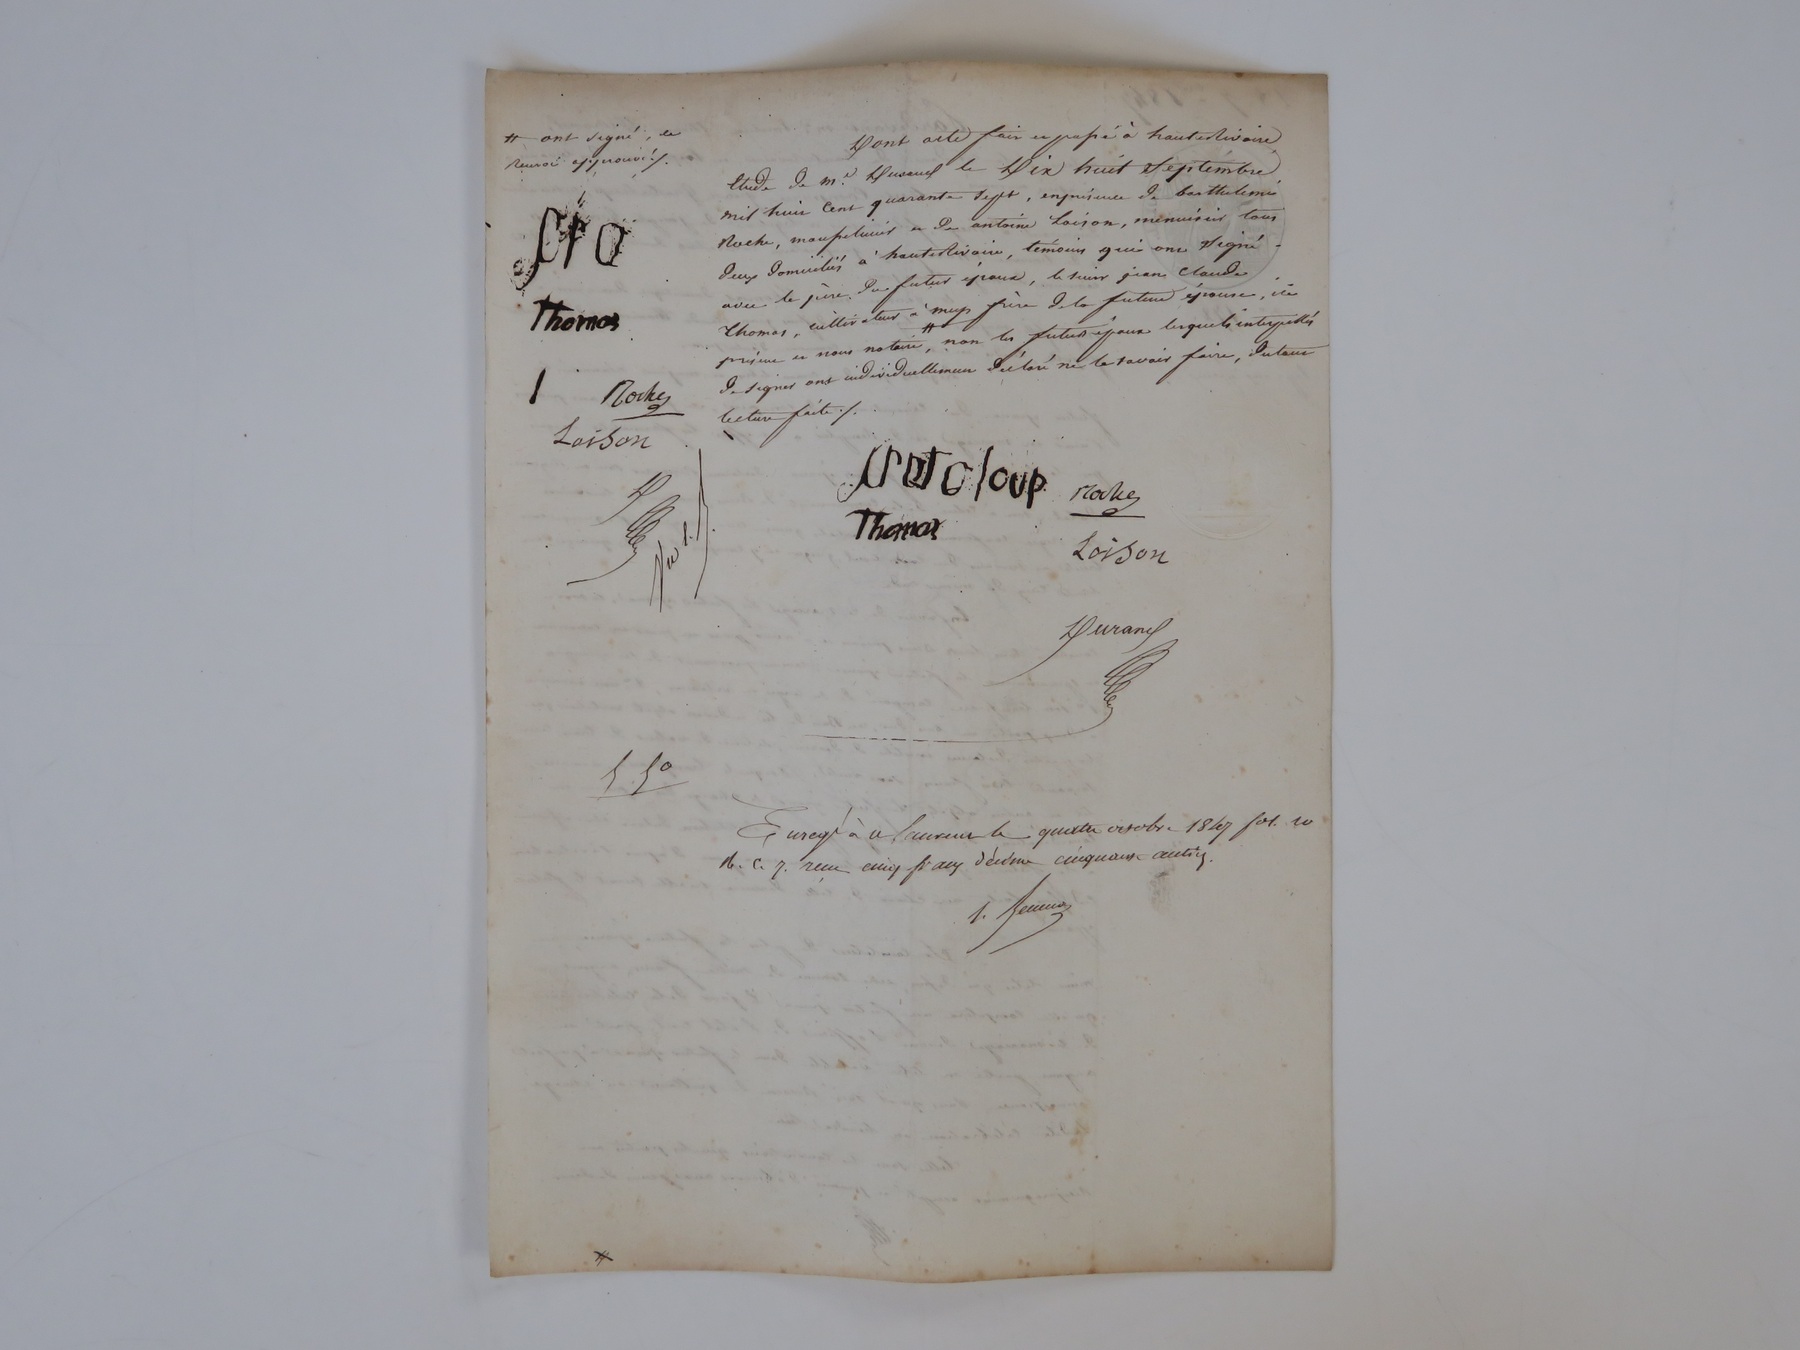 # ont signé, ce
renvoi approuvé ./.
Thomas
Roche
Loison
Dont acte fait et passé à hauterivoire
Etude de Me. Durand le Dix huit Septembre
mil huit Cent quarante sept, en présence de barthelemi
Roche, et de antoine Loison, menuisier tous
deux domiciliés à hauterivoire, témoins qui ont signé
avec le père du futur époux, le sieur jean Claude
Thomas, cultivateur à meys frère de la future épouse, ici
présent et nous notaire, # non les futurs époux lesquels interpellés
de signer ont individuellement déclaré ne le savoir faire, du tout
lecture faite ./.
Thomas
Roche
Loison
Durand
Enregé à St Laurent le quatre octobre 1847 fol. 10
R. C. 7. reçu cinq francs décime cinquante cent.